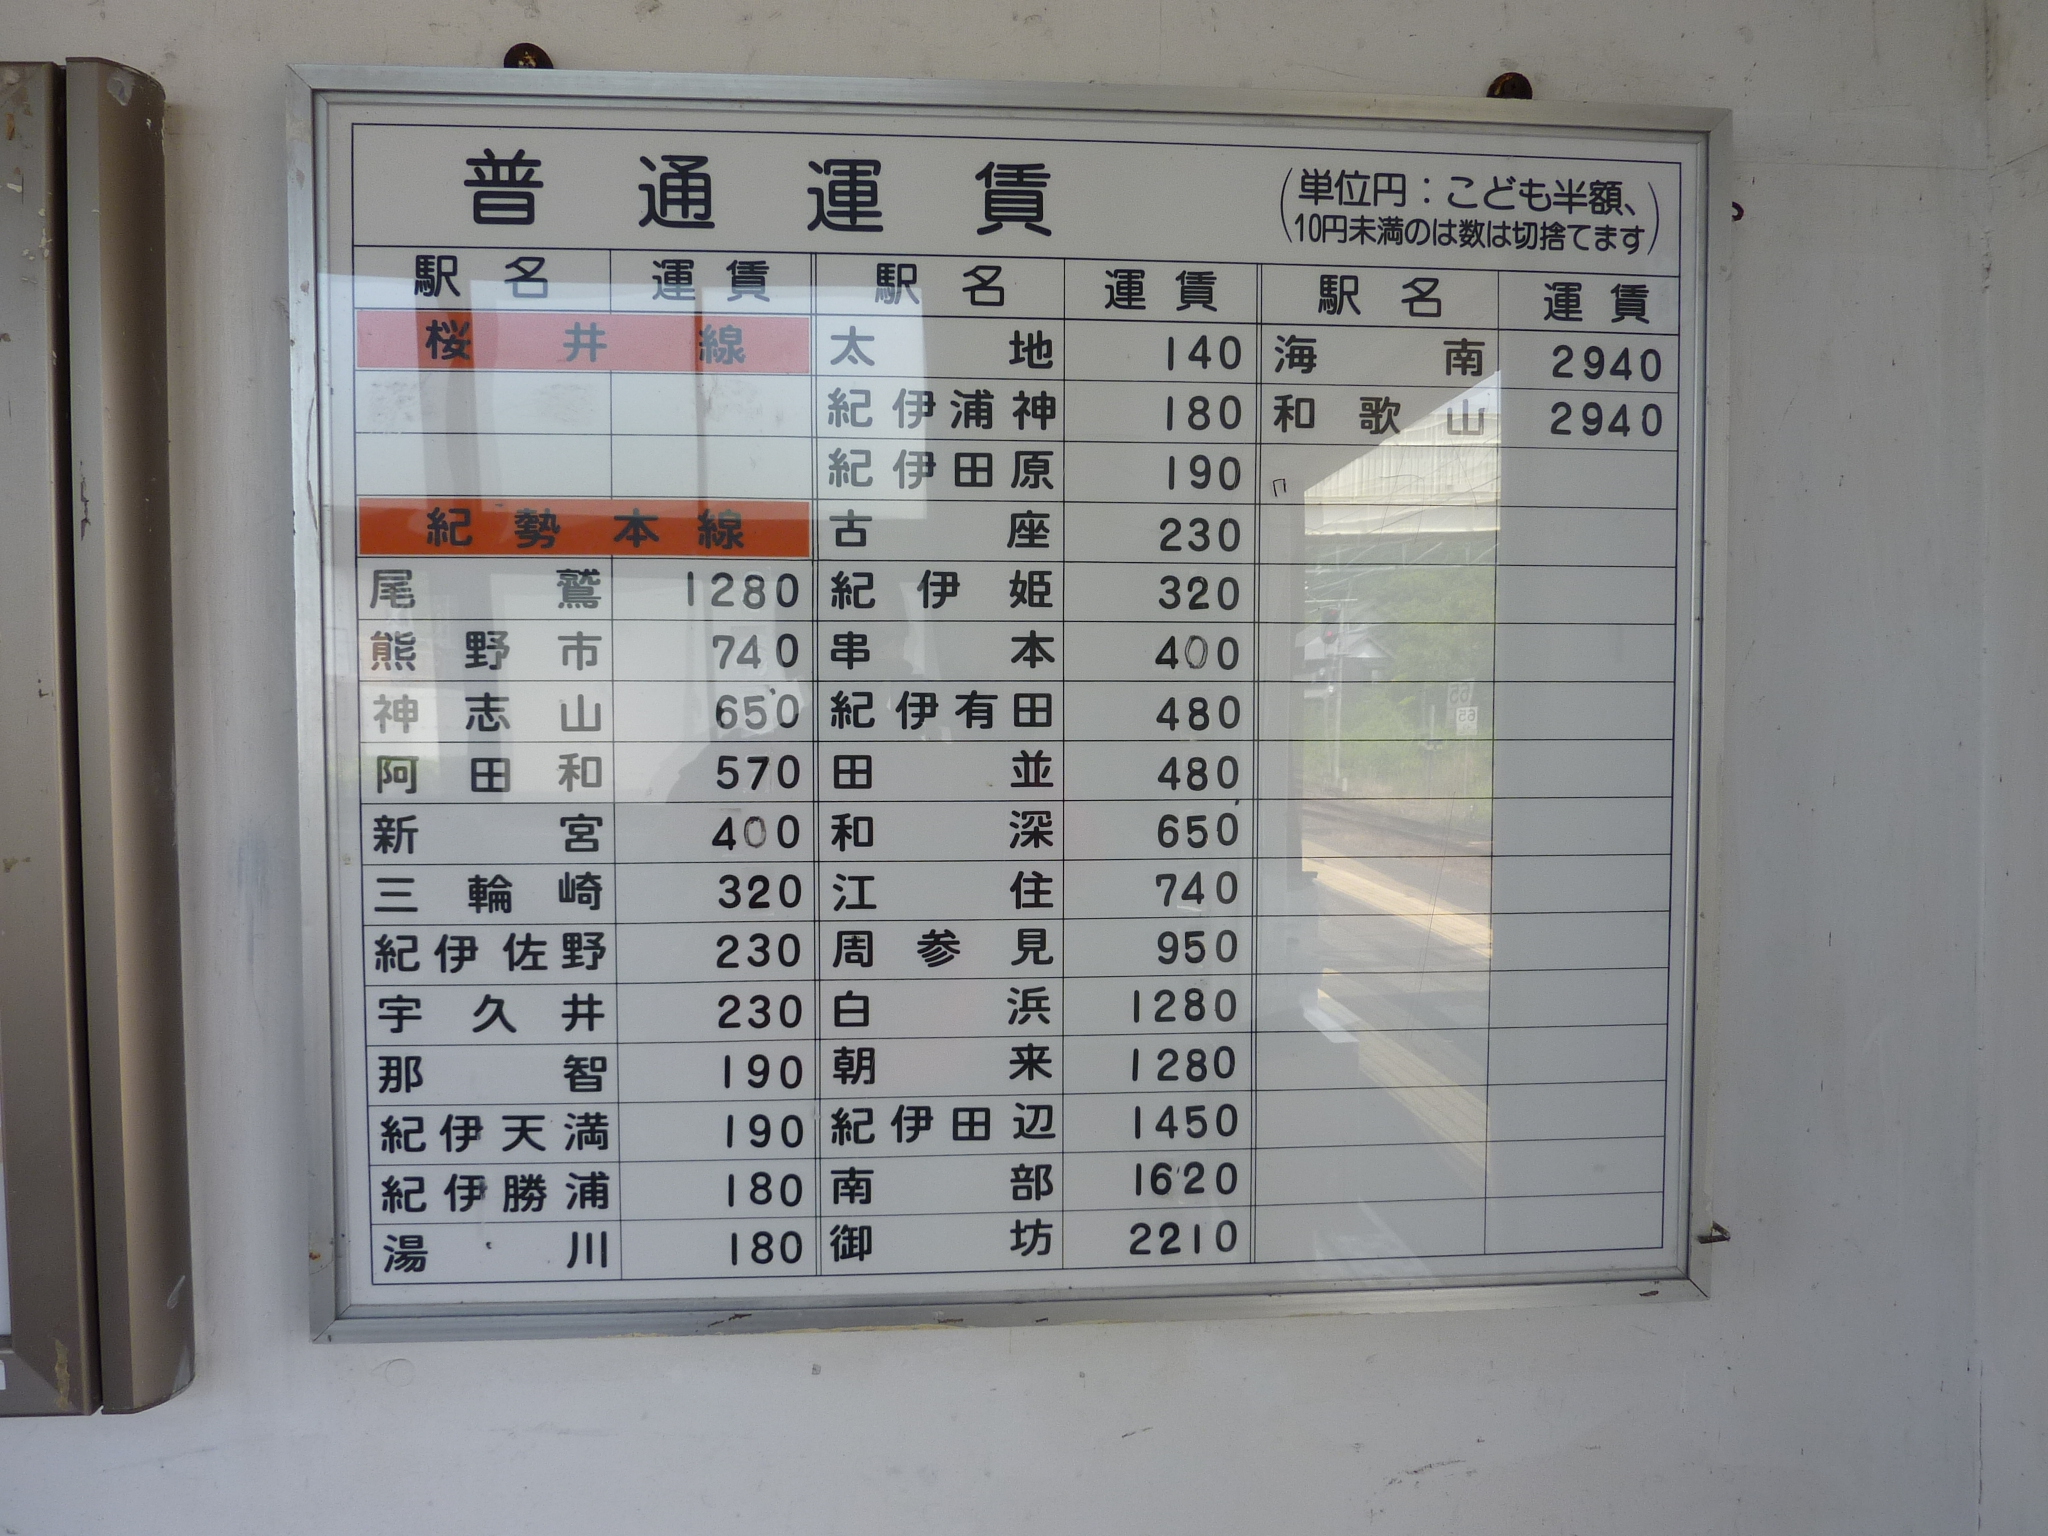 普通運賃
(単位円：こども半額、
10円未満のは数は切捨てます)
駅名 運賃
桜井線
紀勢本線
尾鷲 1280
熊野市 740
神志山 650
阿田和 570
新宮 400
三輪崎 320
紀伊佐野 230
宇久井 230
那智 190
紀伊天満 190
紀伊勝浦 180
湯川 180
駅名 運賃
太地 140
紀伊浦神 180
紀伊田原 190
古座 230
紀伊姫 320
串本 400
紀伊有田 480
田並 480
和深 650
江住 740
周参見 950
白浜 1280
朝来 1280
紀伊田辺 1450
南部 1620
御坊 2210
駅名 運賃
海南 2940
和歌山 2940